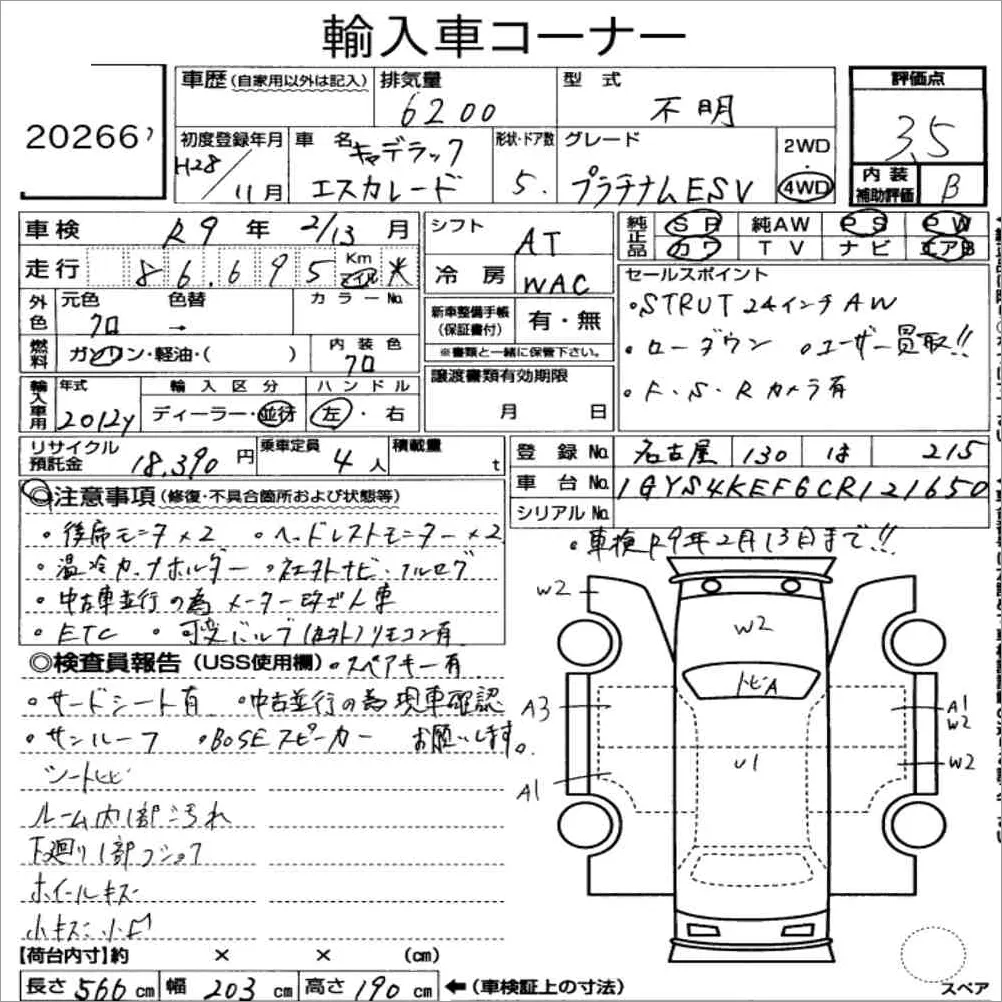 輸入車コーナー
20266
車歴(自家用以外は記入) 排気量 6200 型式 不明 評価点 3.5
初度登録年月 H28/11月 車名 キャデラック エスカレード 形状・ドア数 5. グレード プラチナムESV 2WD・4WD 内装補助評価 B
車検 R9年2/13月 シフト AT 純正品 SR 純AW PS PW
カワ TV ナビ エアB
走行 86,695 Km マイル * 冷房 WAC
セールスポイント
・STRUT 24インチAW
・ローダウン ・ユーザー買取!!
・F・S・Rカメラ有
外色 元色 クロ 色替 → カラーNo.
新車整備手帳(保証書付) 有・無
※書類と一緒に保管下さい。
燃料 ガソリン・軽油・( ) 内装色 クロ
譲渡書類有効期限
月 日
輸入車用 年式 2012y 輸入区分 ディーラー・並行 ハンドル 左・右
リサイクル預託金 18,390円 乗車定員 4人 積載量 t
登録No. 名古屋 130 は 215
車台No. 1GYS4KEF6CR121650
シリアルNo.
◎注意事項(修復・不具合箇所および状態等)
・車検R9年2月13日まで!!
・後席モニタ×2 ・ヘッドレストモニター×2
・温冷カップホルダー ・社外ナビ・フルセグ
・中古車並行の為メーター改ざん車
・ETC ・可変バルブ(社外)リモコン有
◎検査員報告(USS使用欄) ・スペアキー有
・サードシート有 ・中古並行の為現車確認
・サンルーフ ・BOSEスピーカー お願いします。
シートヒビ
ルーム内1部汚れ
下廻り1部フショク
ホイールキズ
小キズ小凹
W2
W2
トビA
A3
A1
W2
U1
W2
A1
【荷台内寸】約 × × (cm)
長さ 566 cm 幅 203 cm 高さ 190 cm ←(車検証上の寸法)
スペア